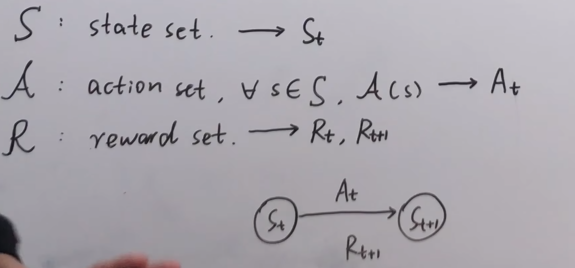 S : state set. → St
A : action set, ∀ s∈S, A(s) → At
R : reward set. → Rt, Rt+1
At
St → St+1
Rt+1